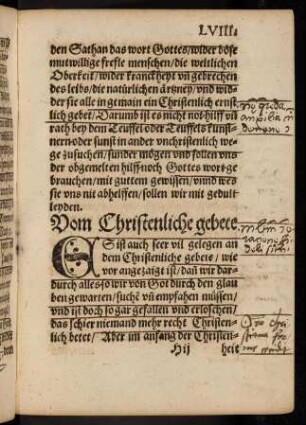 LVIII.
den Sathan das wort Gottes/wider böse
mutwillige frefle menschen/die weltlichen
Oberkeit/wider kranckheyt vñ gebrechen
des leibs/die natürlichen ärtzney/vnd wid-
der sie alle in gemain ein Christenlich ernst-
lich gebet/Darumb ist es nicht not hilff vñ
rath bey dem Teuffel oder Teuffels künst-
nern oder sunst in ander vnchristenlich we-
ge zu suchen/sunder mögen vnd sollen vns
der obgemelten hilff noch Gottes wort ge
brauchen/mit guttem gewissen/vnnd wes
sie vns nit abhelffen/sollen wir mit gedult
leyden.
Vom Christenliche gebete.
ES ist auch seer vil gelegen an
dem Christenliche gebete/wie
vor angezaigt ist/daß wir dar-
durch alles so wir von Got durch den glau
ben gewarten/suchē vñ empfahen müssen/
vnd ist doch so gar gefallen vnd erloschen/
das schier niemand mehr recht Christen-
lich betet/Aber im anfang der Christen-
Hij heit